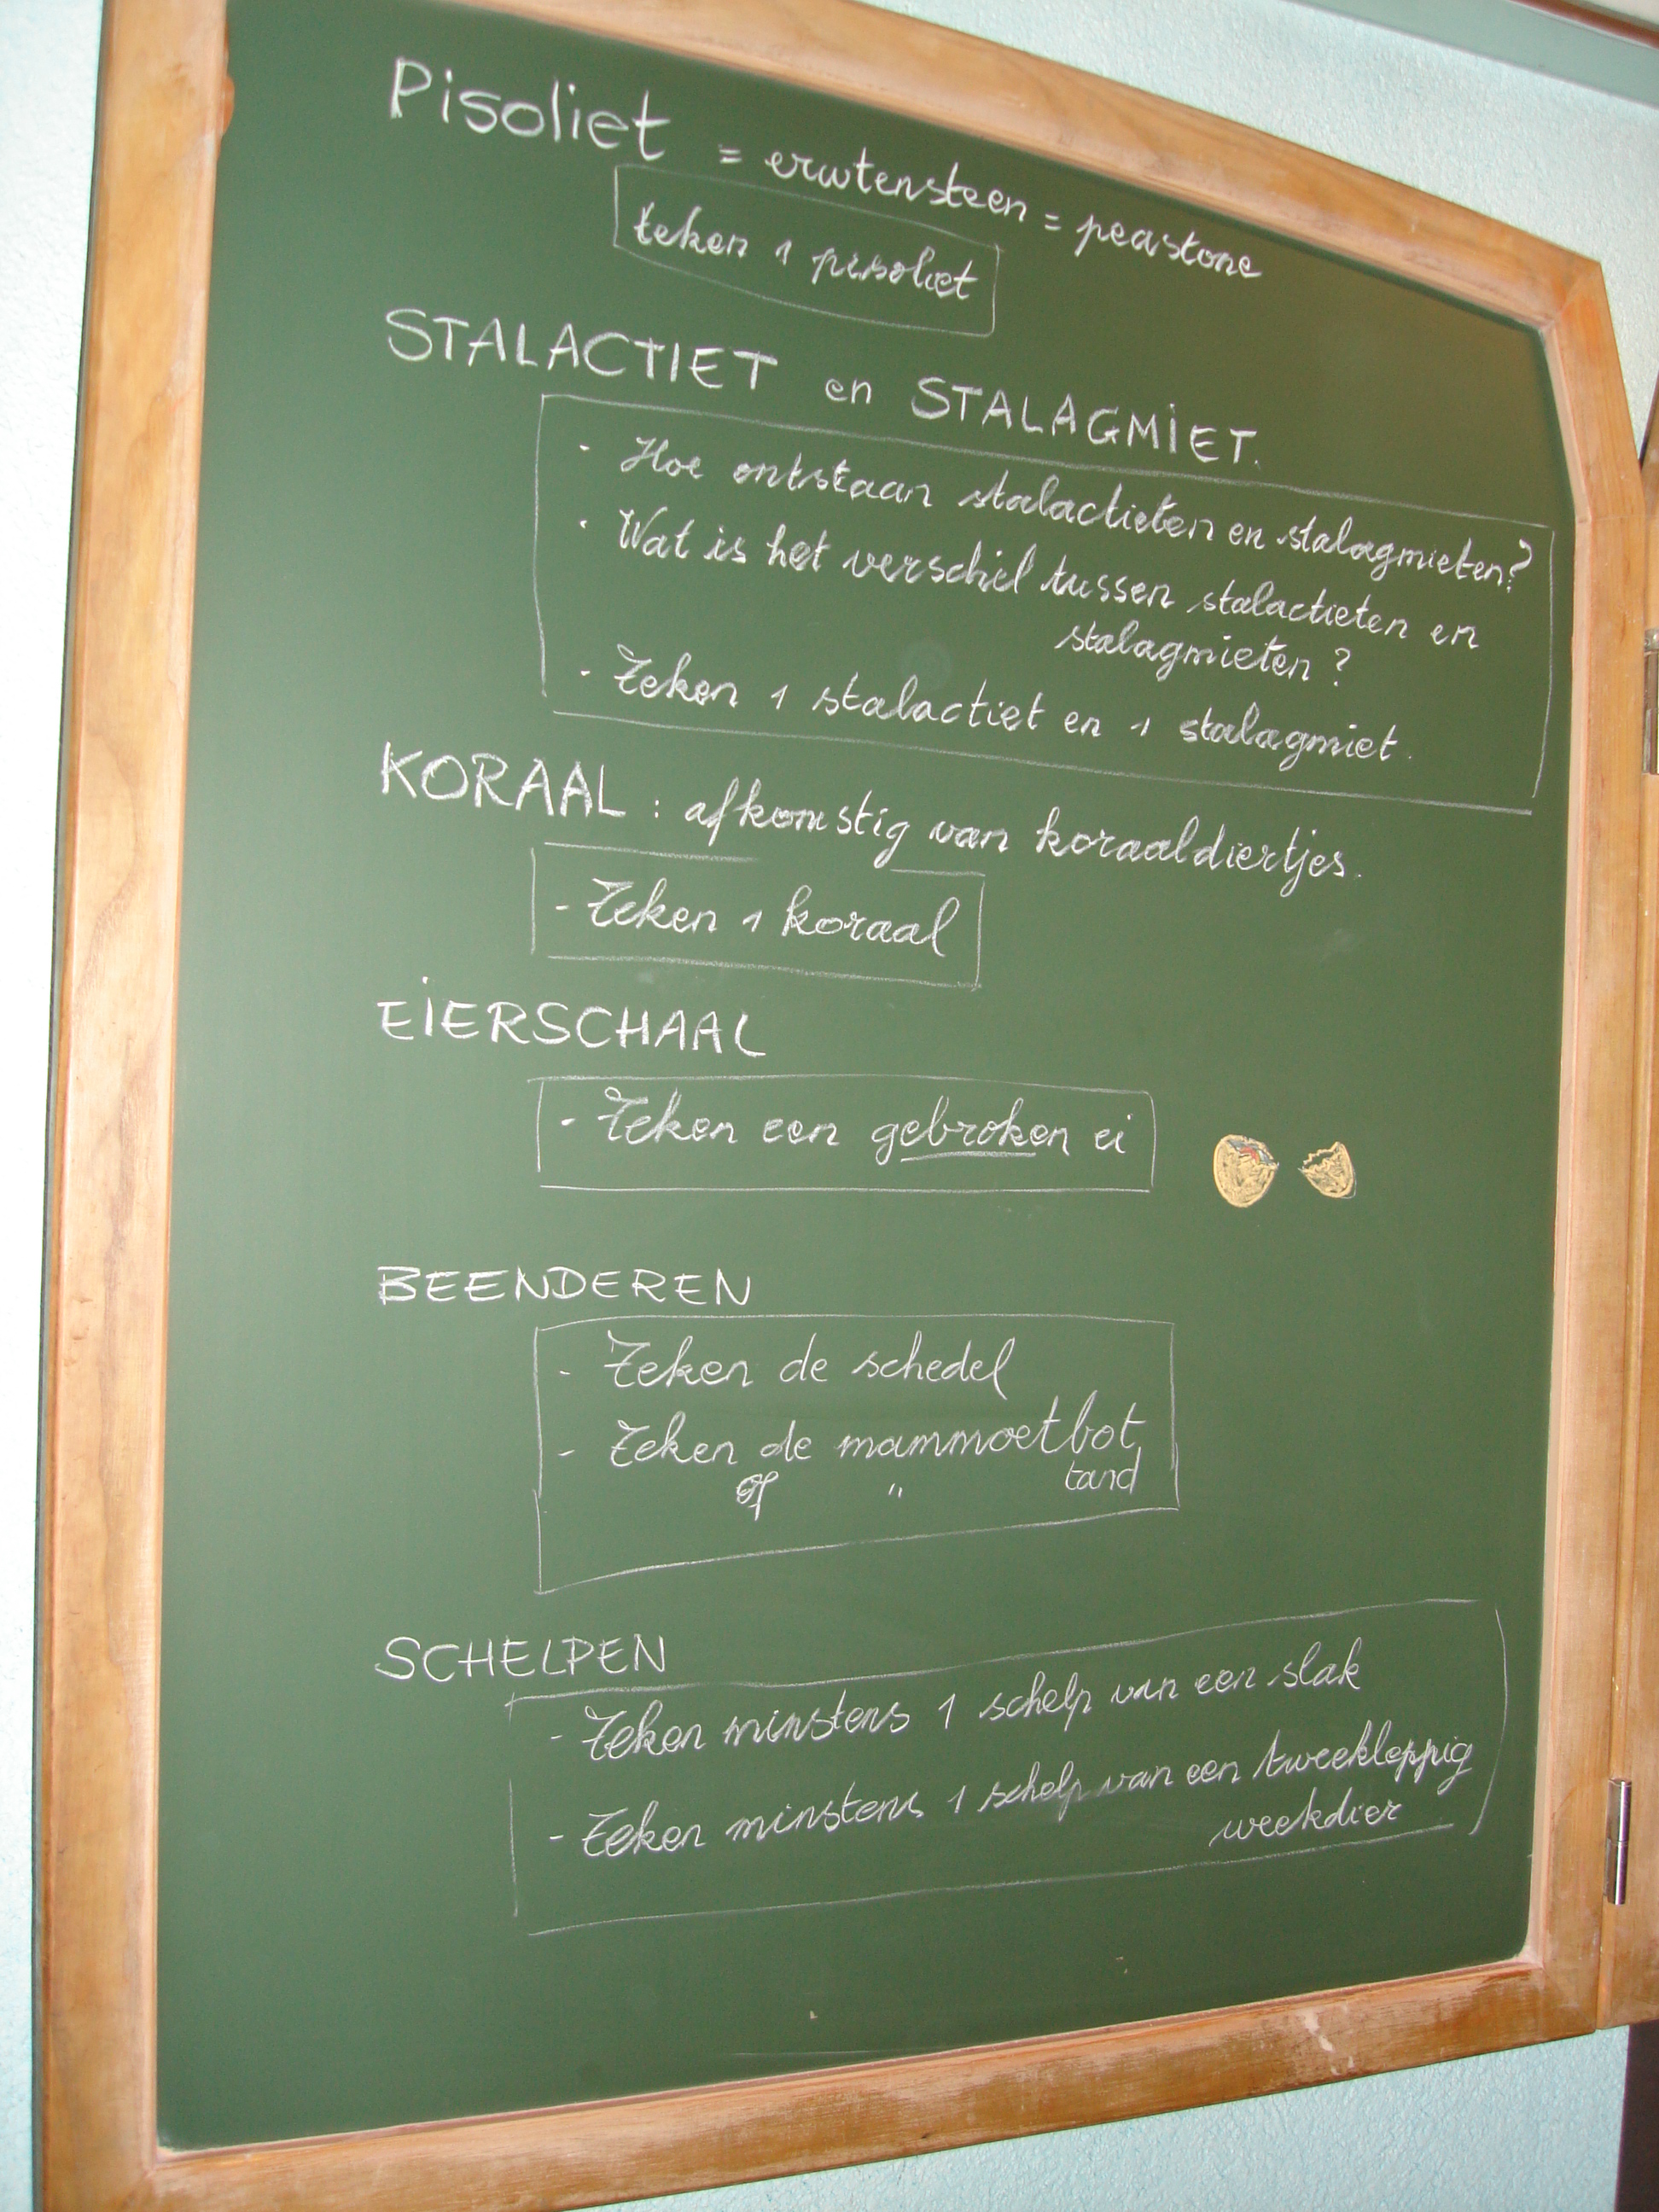 Pisoliet = erwtensteen = peastone
teken 1 pisoliet
STALACTIET en STALAGMIET.
- Hoe ontstaan stalactieten en stalagmieten?
- Wat is het verschil tussen stalactieten en
stalagmieten?
- Teken 1 stalactiet en 1 stalagmiet.
KORAAL : afkomstig van koraaldiertjes.
- Teken 1 koraal
EIERSCHAAL
- Teken een gebroken ei
BEENDEREN
- Teken de schedel
- Teken de mammoetbot
of " tand
SCHELPEN
- Teken minstens 1 schelp van een slak
- Teken minstens 1 schelp van een tweekleppig
weekdier